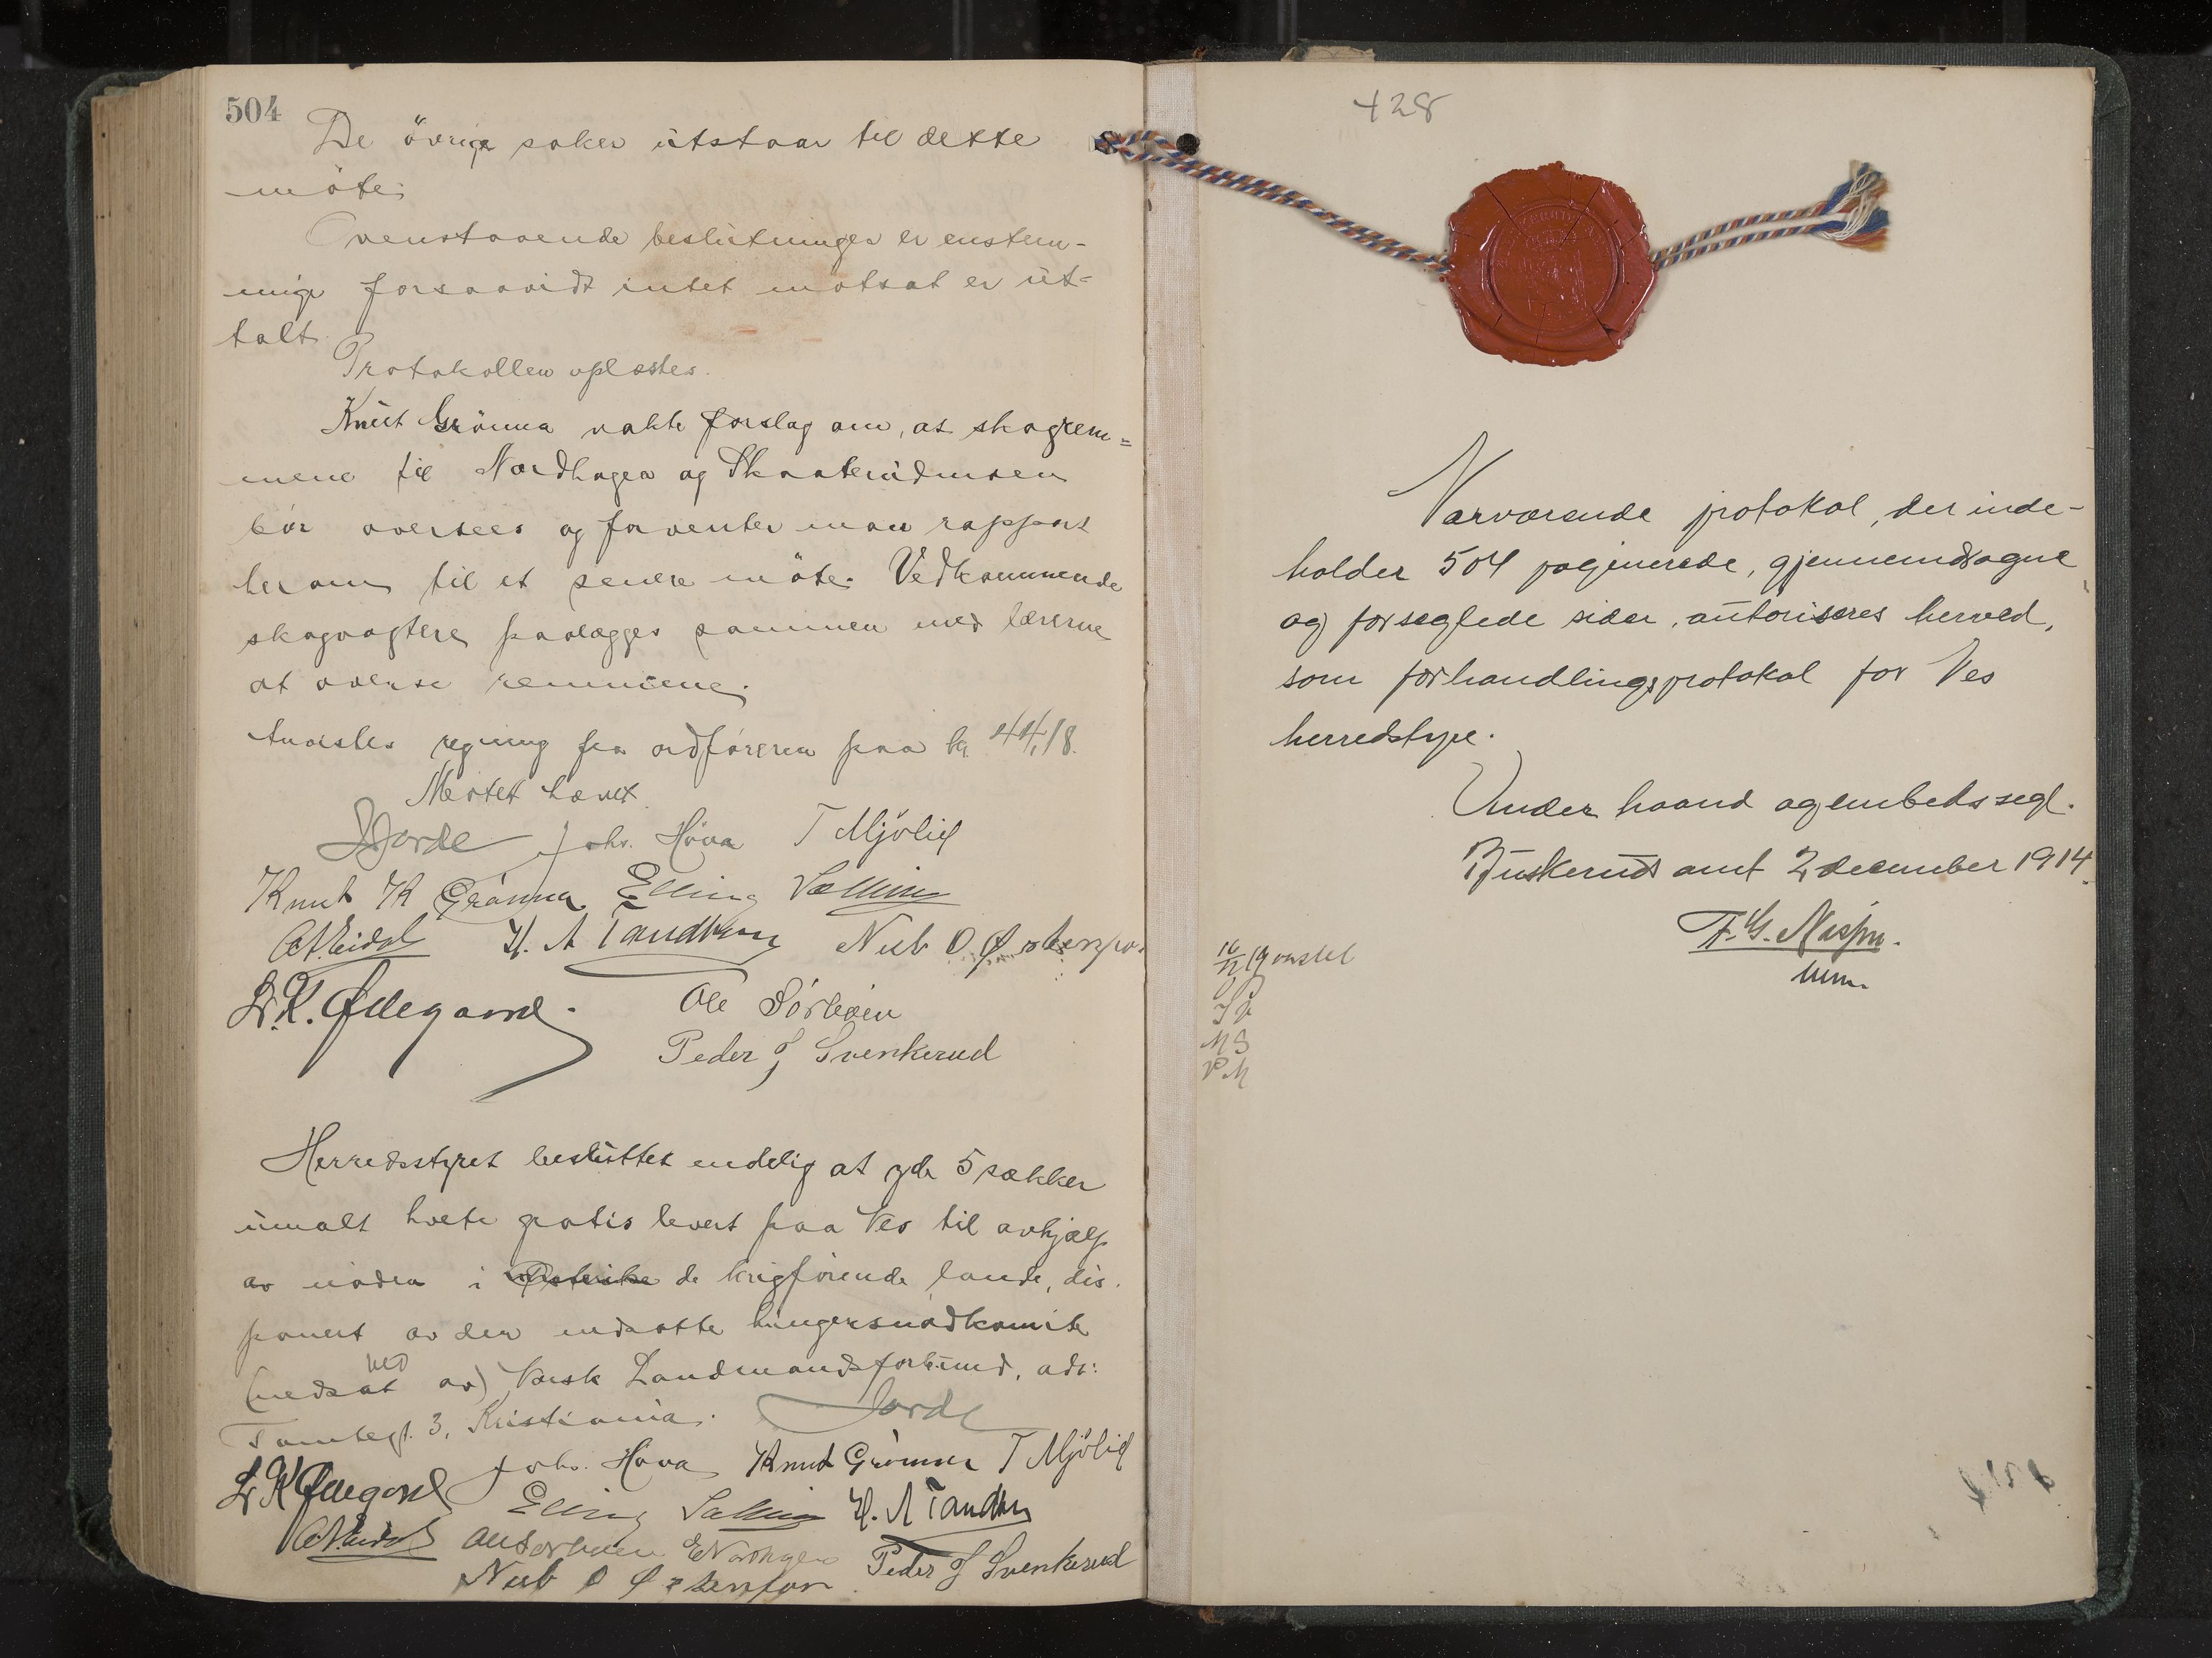 504
De övrige saker utstaar til dette
möte.
Ovenstaaende beslutninger er enstem-
mige forsaavidt intet motsat er ut-
talt.
Protokollen oplæstes.
Knut Grönna vakte forslag om, at skogrem-
mene til Nordhagen og
bör oversees og forventer man rapport
herom til et senere möte. Vedkommende
skogvogtere paalægges sammen med lærerne
at overse remmene.
regning fra ordföreren paa kr. 44,18.
Mötet hævet.
Jorde Johs. Höva T Mjölid
Knut K Grönna Elling Sælling
H. A Tandberg Nub O
L. K. Øllegaard. Ole Sörbøen
Peder J Svenkerud
Herredsstyret besluttet endelig at yde 5 sækker
umalt hvete gratis levert paa Nes til avhjælp
av nöden i de krigförende lande, dis-
ponert av den nedsatte hungersnödkomite
(nedsat ved av) Norsk Landmandsforbund, adr:
3, Kristiania. Jorde
L K Øllegaard Johs. Höva Knut Grönna T Mjölid
Elling Sælling H. A Tandberg
Peder J Svenkerud
Nub O
428
Nærværende protokol, der inde-
holder 504 paginerede, gjennemdragne
og forseglede sider, autoriseres herved,
som forhandlingsprotokol for Nes
herredstyre.
Under haand og embedssegl.
Buskeruds amt 2 december 1914.